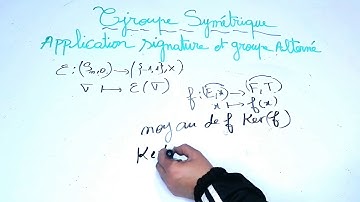 Groupe Symétrique
Application signature et groupe Alterné
ε : (Sn, o) → ({-1,1}, x)
∇ ↦ ε(∇)
f : (E, x) → (F, T)
x ↦ f(x)
noyau de f Ker(f)
Ker